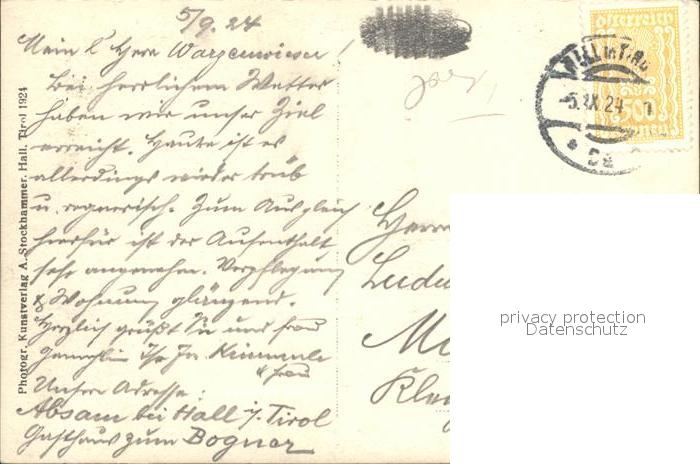 5/9. 24
Mein l. Herr Wargenwieser!
Bei herrlichem Wetter
haben wir unser Ziel
erreicht. Heute ist es
allerdings wieder trüb
u. regnerisch. Zum Ausgleich
hierfür ist der Aufenthalt
sehr angenehm. Verpflegung
& Wohnung glänzend.
Herzlich grüßt Sie und Frau
Gemahlin Ihr
& Frau
Unsere Adresse:
Absam bei Hall i/ Tirol
Gasthaus zum Bogner
Photogr. Kunstverlag A. Stockhammer, Hall, Tirol 1924
österreich
500
Kronen
HALL in TIROL
-5.IX.24
Herrn
Ludw
privacy protection
Datenschutz